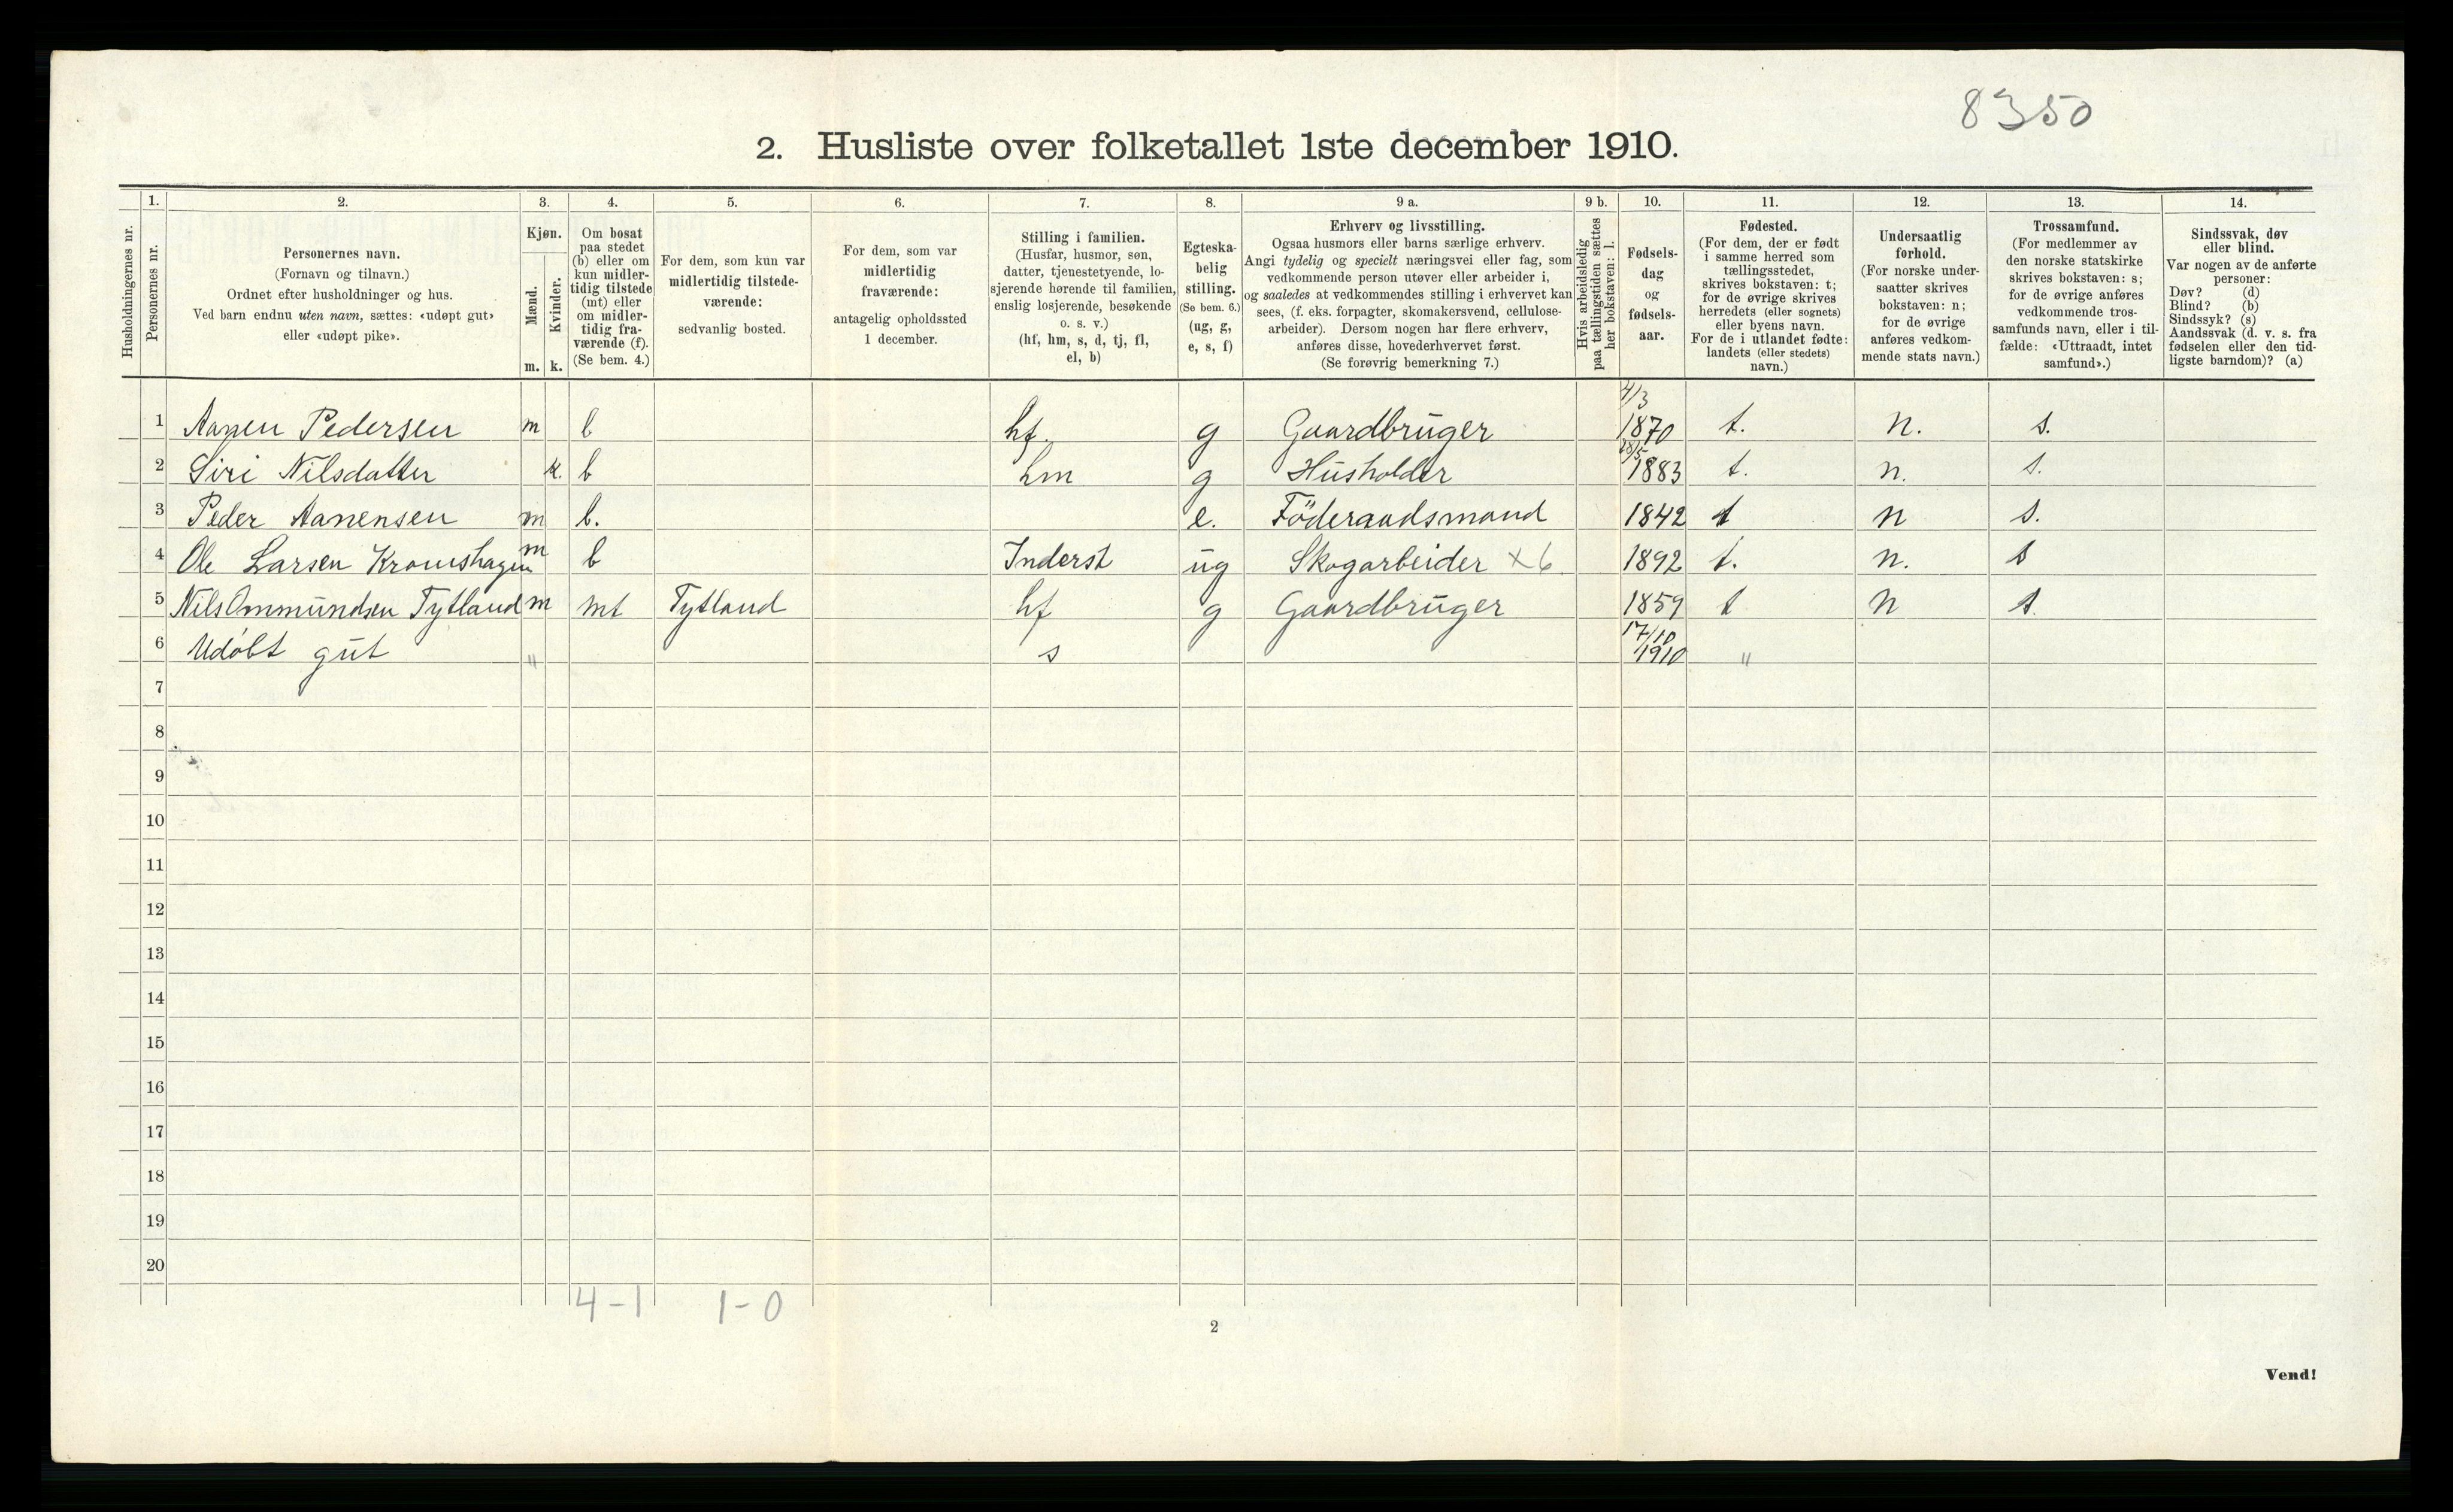 8350
2. Husliste over folketallet 1ste december 1910.
Husholdningernes nr.
1.
Personernes nr.
2.
Personernes navn.
(Fornavn og tilnavn.)
Ordnet efter husholdninger og hus.
Ved barn endnu uten navn, sættes: «udøpt gut»
eller «udøpt pike».
3.
Kjøn.
Mænd.
Kvinder.
m. k.
4.
Om bosat
paa stedet
(b) eller om
kun midler-
tidig tilstede
(mt) eller
om midler-
tidig fra-
værende (f).
(Se bem. 4.)
5.
For dem, som kun var
midlertidig tilstede-
værende:
sedvanlig bosted.
6.
For dem, som var
midlertidig
fraværende:
antagelig opholdssted
1 december.
7.
Stilling i familien.
(Husfar, husmor, søn,
datter, tjenestetyende, lo-
sjerende hørende til familien,
enslig losjerende, besøkende
o. s. v.)
(hf, hm, s, d, tj, fl,
el, b)
8.
Egteska-
belig
stilling.
(Se bem. 6.)
(ug, g,
e, s, f)
9 a.
Erhverv og livsstilling.
Ogsaa husmors eller barns særlige erhverv.
Angi tydelig og specielt næringsvei eller fag, som
vedkommende person utøver eller arbeider i,
og saaledes at vedkommendes stilling i erhvervet kan
sees, (f. eks. forpagter, skomakersvend, cellulose-
arbeider). Dersom nogen har flere erhverv,
anføres disse, hovederhvervet først.
(Se forøvrig bemerkning 7.)
9 b.
Hvis arbeidsledig
paa tællingstiden sættes
her bokstaven: l.
10.
Fødsels-
dag
og
fødsels-
aar.
11.
Fødested.
(For dem, der er født
i samme herred som
tællingsstedet,
skrives bokstaven: t;
for de øvrige skrives
herredets (eller sognets)
eller byens navn.
For de i utlandet fødte:
landets (eller stedets)
navn.)
12.
Undersaatlig
forhold.
(For norske under-
saatter skrives
bokstaven: n;
for de øvrige
anføres vedkom-
mende stats navn.)
13.
Trossamfund.
(For medlemmer av
den norske statskirke
skrives bokstaven: s;
for de øvrige anføres
vedkommende tros-
samfunds navn, eller i til-
fælde: «Uttraadt, intet
samfund».)
14.
Sindssvak, døv
eller blind.
Var nogen av de anførte
personer:
Døv? (d)
Blind? (b)
Sindssyk? (s)
Aandssvak (d. v. s. fra
fødselen eller den tid-
ligste barndom)? (a)
1 Aanen Pedersen m b hf. g Gaardbruger 4/3 1870 t. n. s.
2 Siri Nilsdatter k. b hm g Husholder 1883 t. n. s.
3 Peder Aanensen m b. e. Föderaadsmand 1842 t n s.
4 Ole Larsen Kromshagen m b Inderst ug Skogarbeider x6. 1892 t. n. s
5 Nils Ommundsen Tytland m mt Tytland hf g Gaardbruger 1859 t n s.
6 Udøbt gut " s 17/10 1910 "
7
8
9
10
11
12
13
14
15
16
17
18
19
20
4-1 1-0
2
Vend!